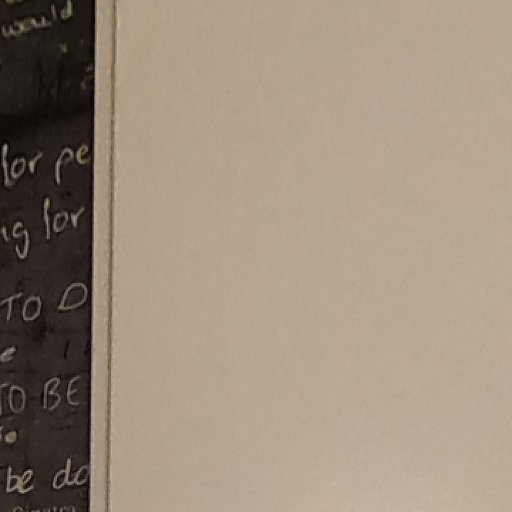 would
for pe
ng for
TO D
e
TO BE
to
be do